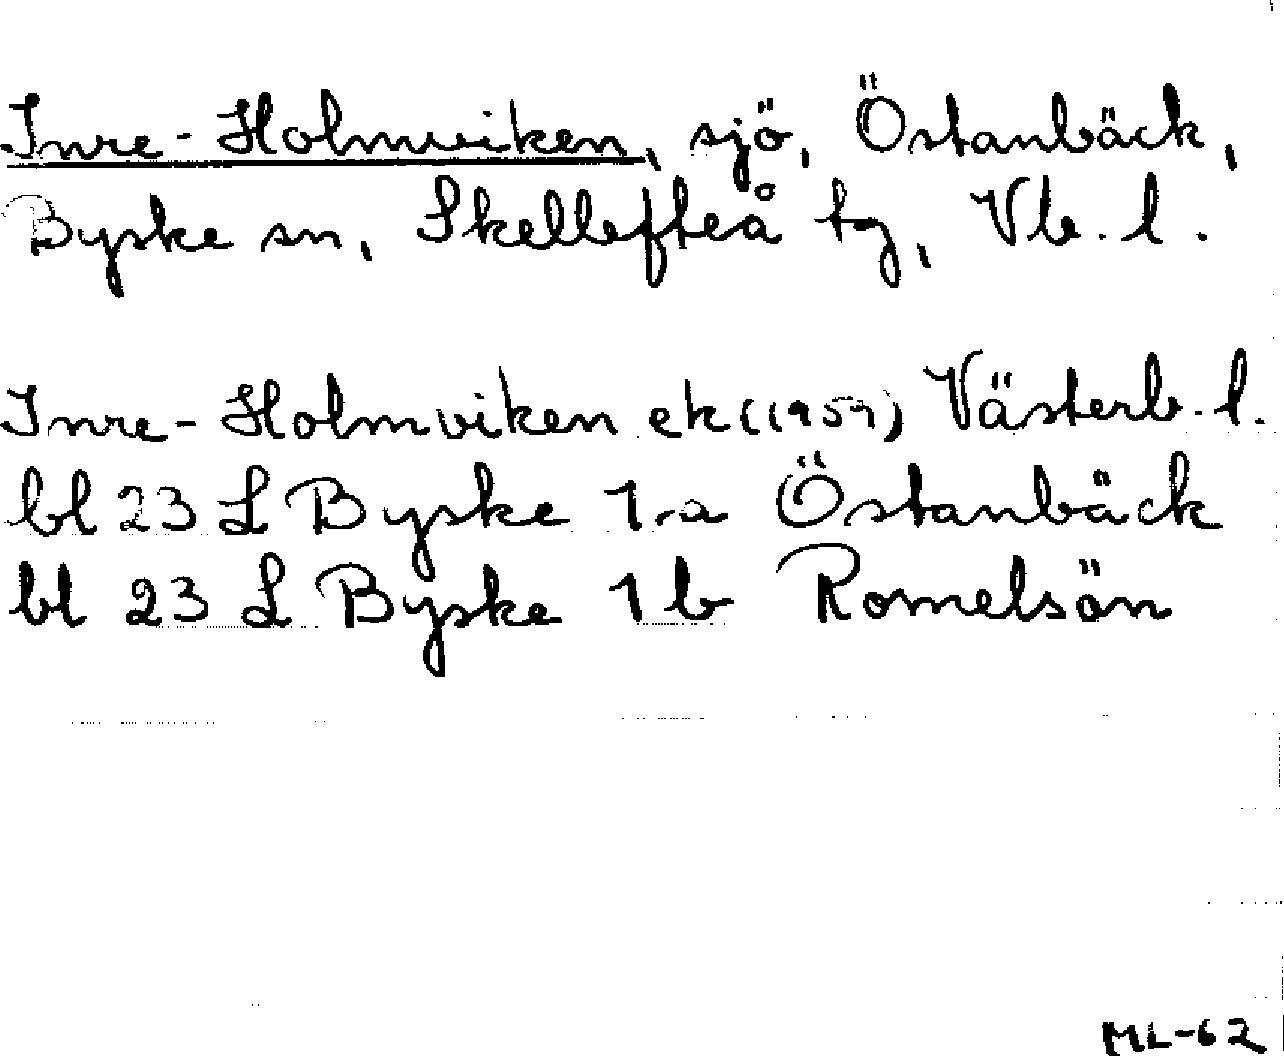 Inre-Holmviken, sjö, Östanbäck,
Byske sn, Skellefteå tg, Vb. l.
Inre-Holmviken ek (1959) Västerb. l.
bl 23 L Byske 1 a Östanbäck
bl 23 L Byske 1 b Romelsön
ML-62